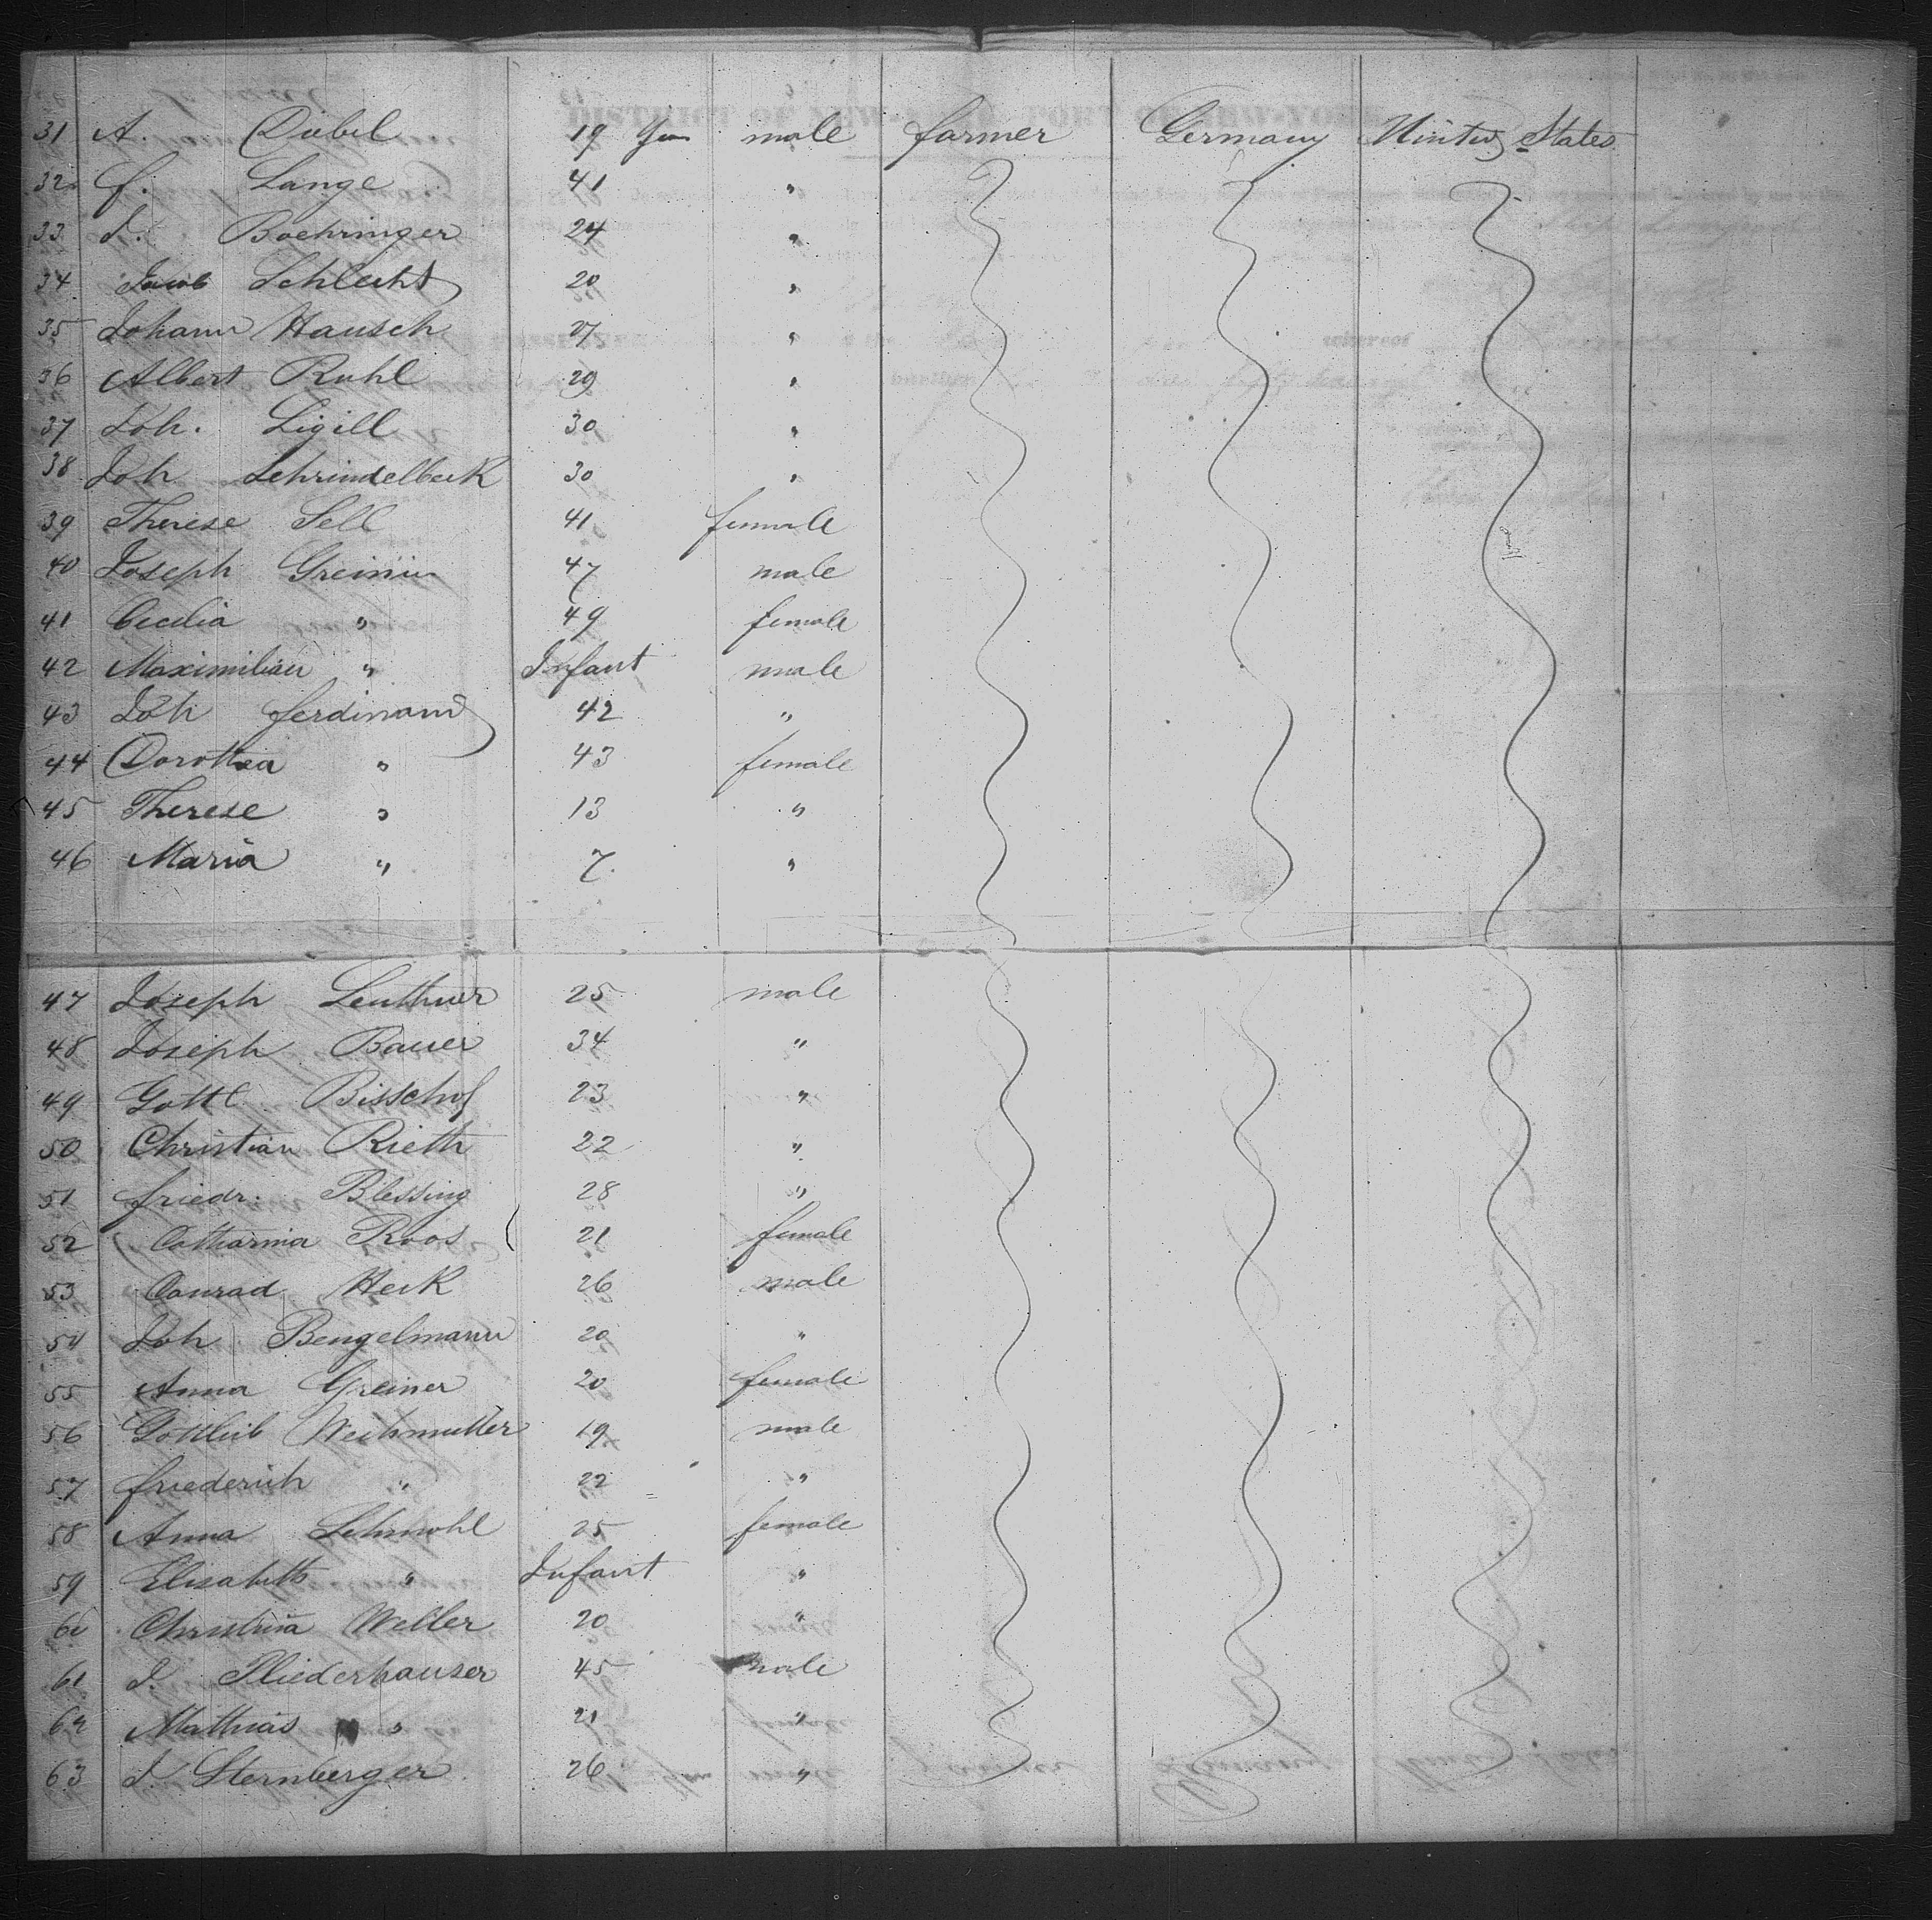 31 A. Dübel 19 Yrs male farmer Germany United States
32 F. Lange 41 "
33 J. Boehringer 24 "
34 Jacob Schlecht 20 "
35 Johann Hausch 27 "
36 Albert Ruhl 29 "
37 Joh. Ligill 30 "
38 Joh Schrindelbeck 30 "
39 Therese Sell 41 female
40 Joseph Greiner 47 male
41 Cecilia " 49 female
42 Maximilian " Infant male
43 Joh Ferdinand 42 "
44 Dorothea " 43 female
45 Therese " 13 "
46 Maria " 7 "
47 Joseph Leuthner 25 male
48 Joseph Bauer 34 "
49 Gottl. Bisschof 23 "
50 Christian Rieth 22 "
51 Friedr. Blessing 28 "
52 Catharina Roos 21 female
53 Conrad Heck 26 male
54 Joh Bengelmann 20 "
55 Anna Greiner 20 female
56 Gottlieb Weihmuller 19 male
57 Friederich " 22 "
58 Anna Schmohl 25 female
59 Elisabeth " Infant "
60 Christina Weller 20 "
61 J. Pliederhauser 45 male
62 Mathias " 21 "
63 J. Sternberger 26 "